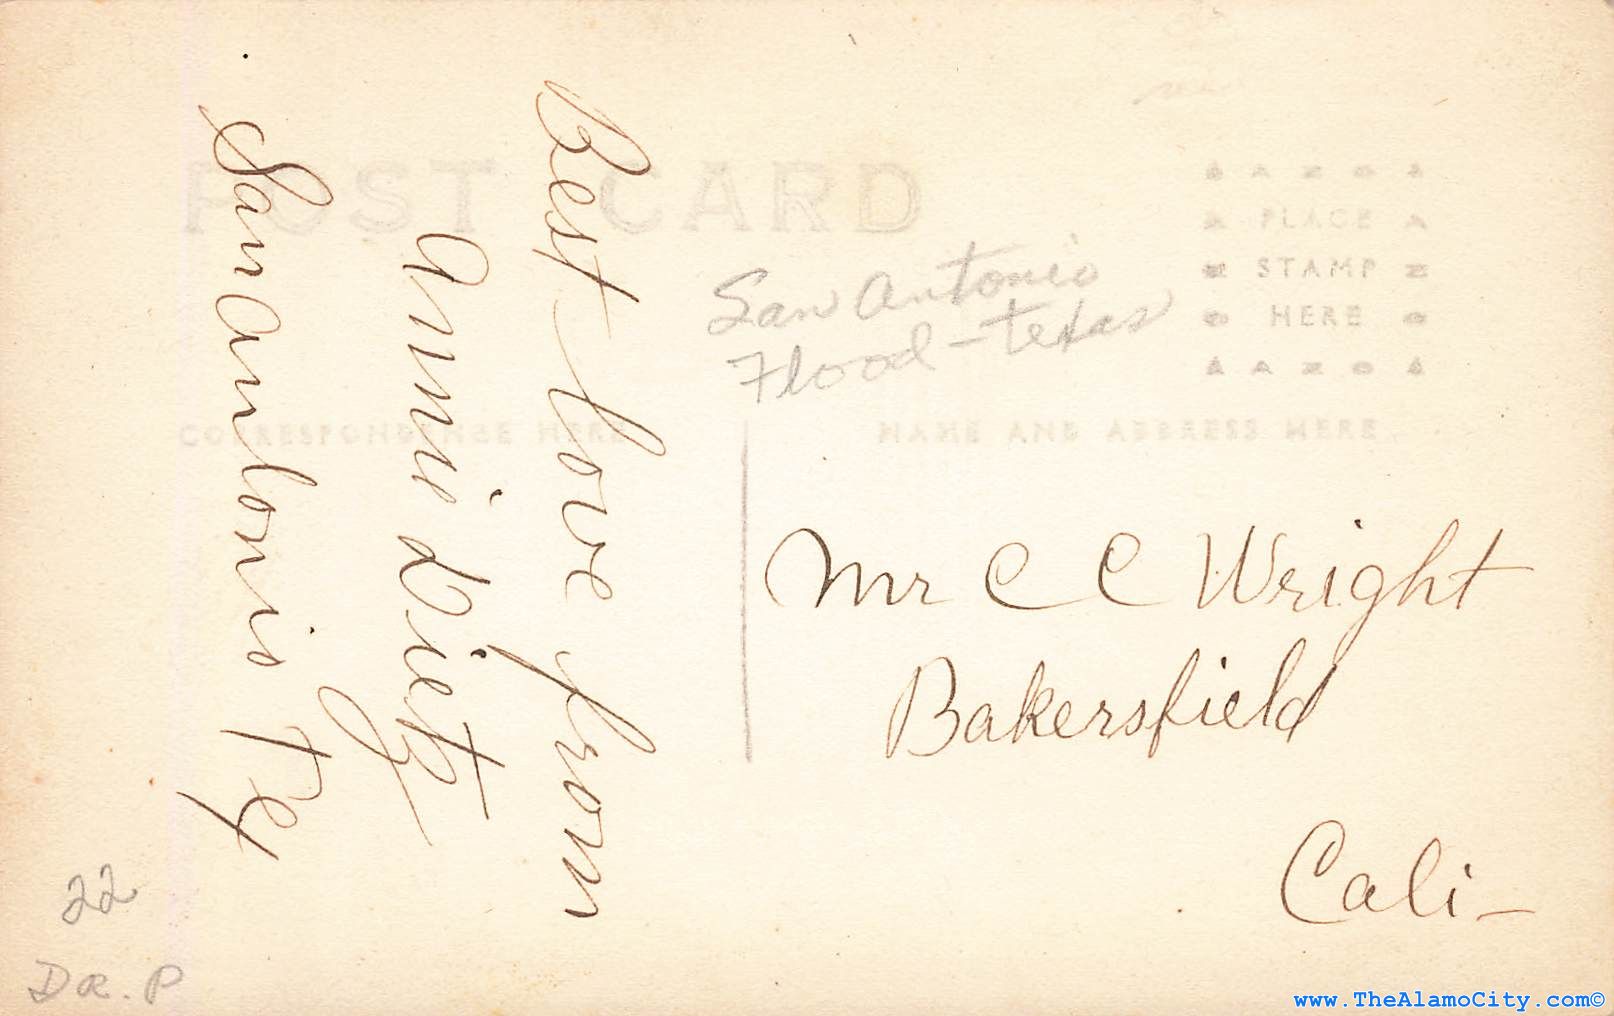 POST CARD
AZO
PLACE
STAMP
HERE
AZO
San Antonio
Flood - Texas
CORRESPONDENCE HERE
NAME AND ADDRESS HERE
Best love from
Annie Dietz
San Antonio Tex
Mr C C Wright
Bakersfield
Cali-
22
www.TheAlamoCity.com©